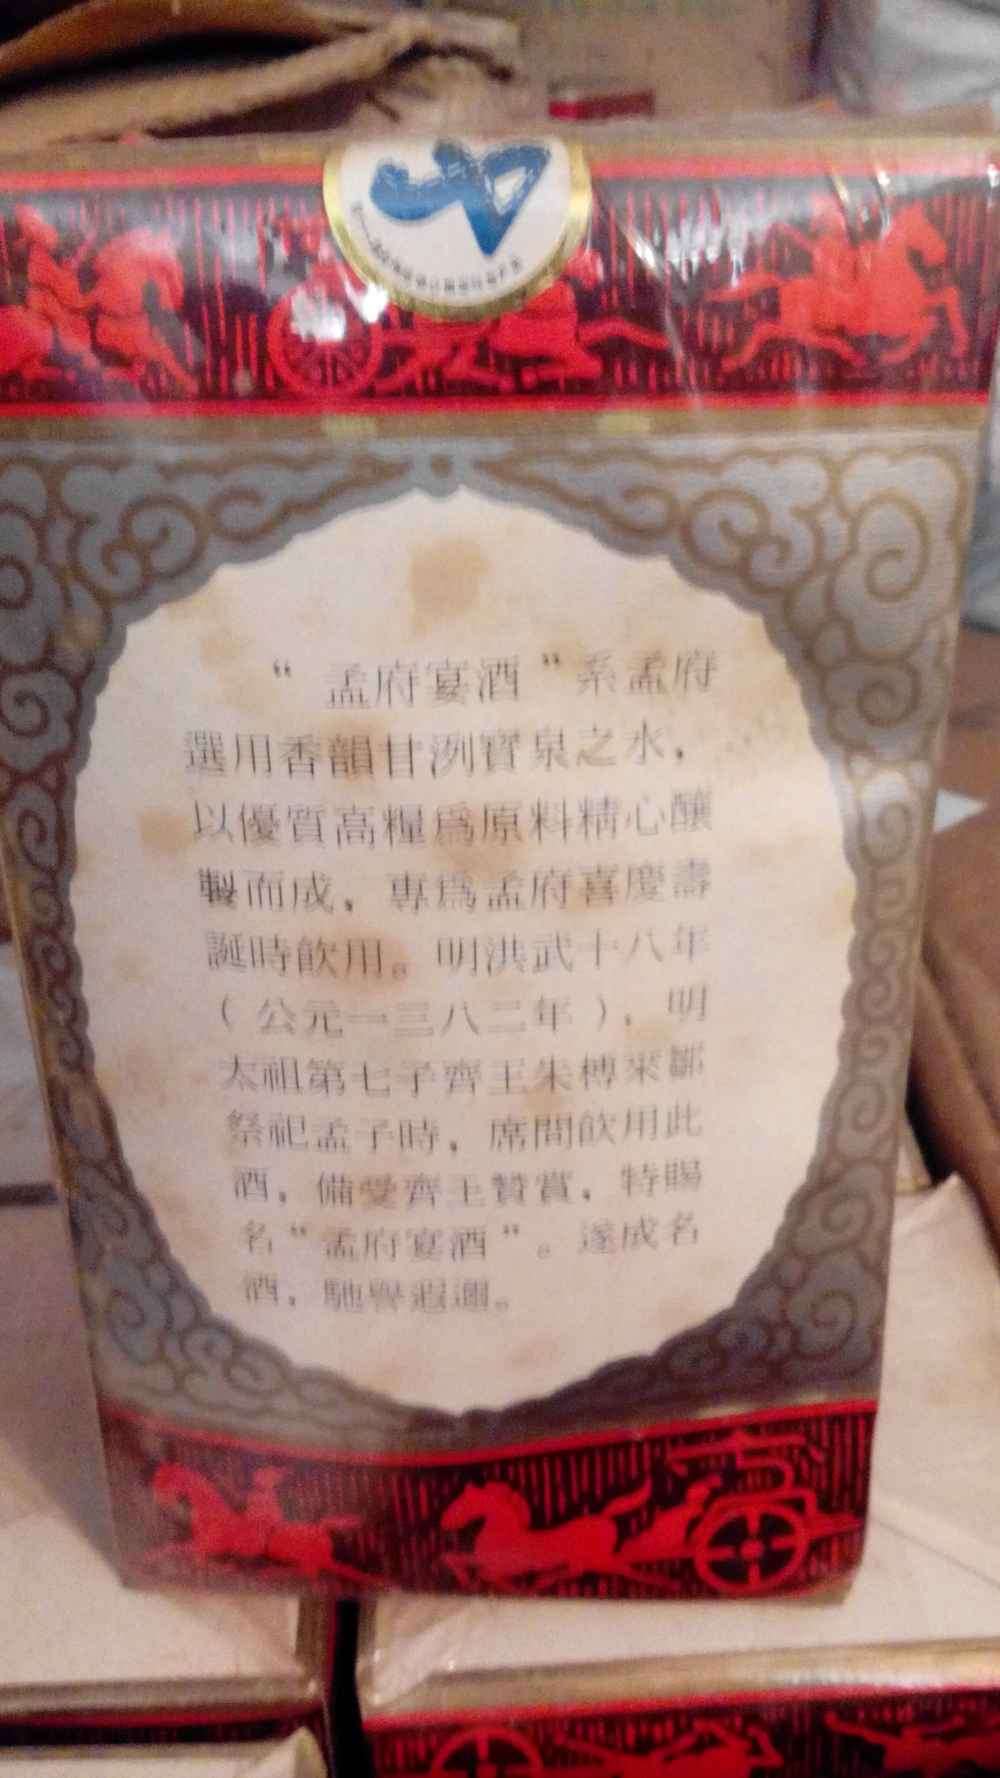 “孟府宴酒”系孟府
選用香韻甘洌寶泉之水，
以優質高糧爲原料精心釀
製而成，專爲孟府喜慶壽
誕時飲用。明洪武十八年
（公元一三八二年），明
太祖第七子齊王朱榑來鄒
祭祀孟子時，席間飲用此
酒，備愛齊王贊賞，特賜
名“孟府宴酒”。遂成名
酒，馳譽遐邇。